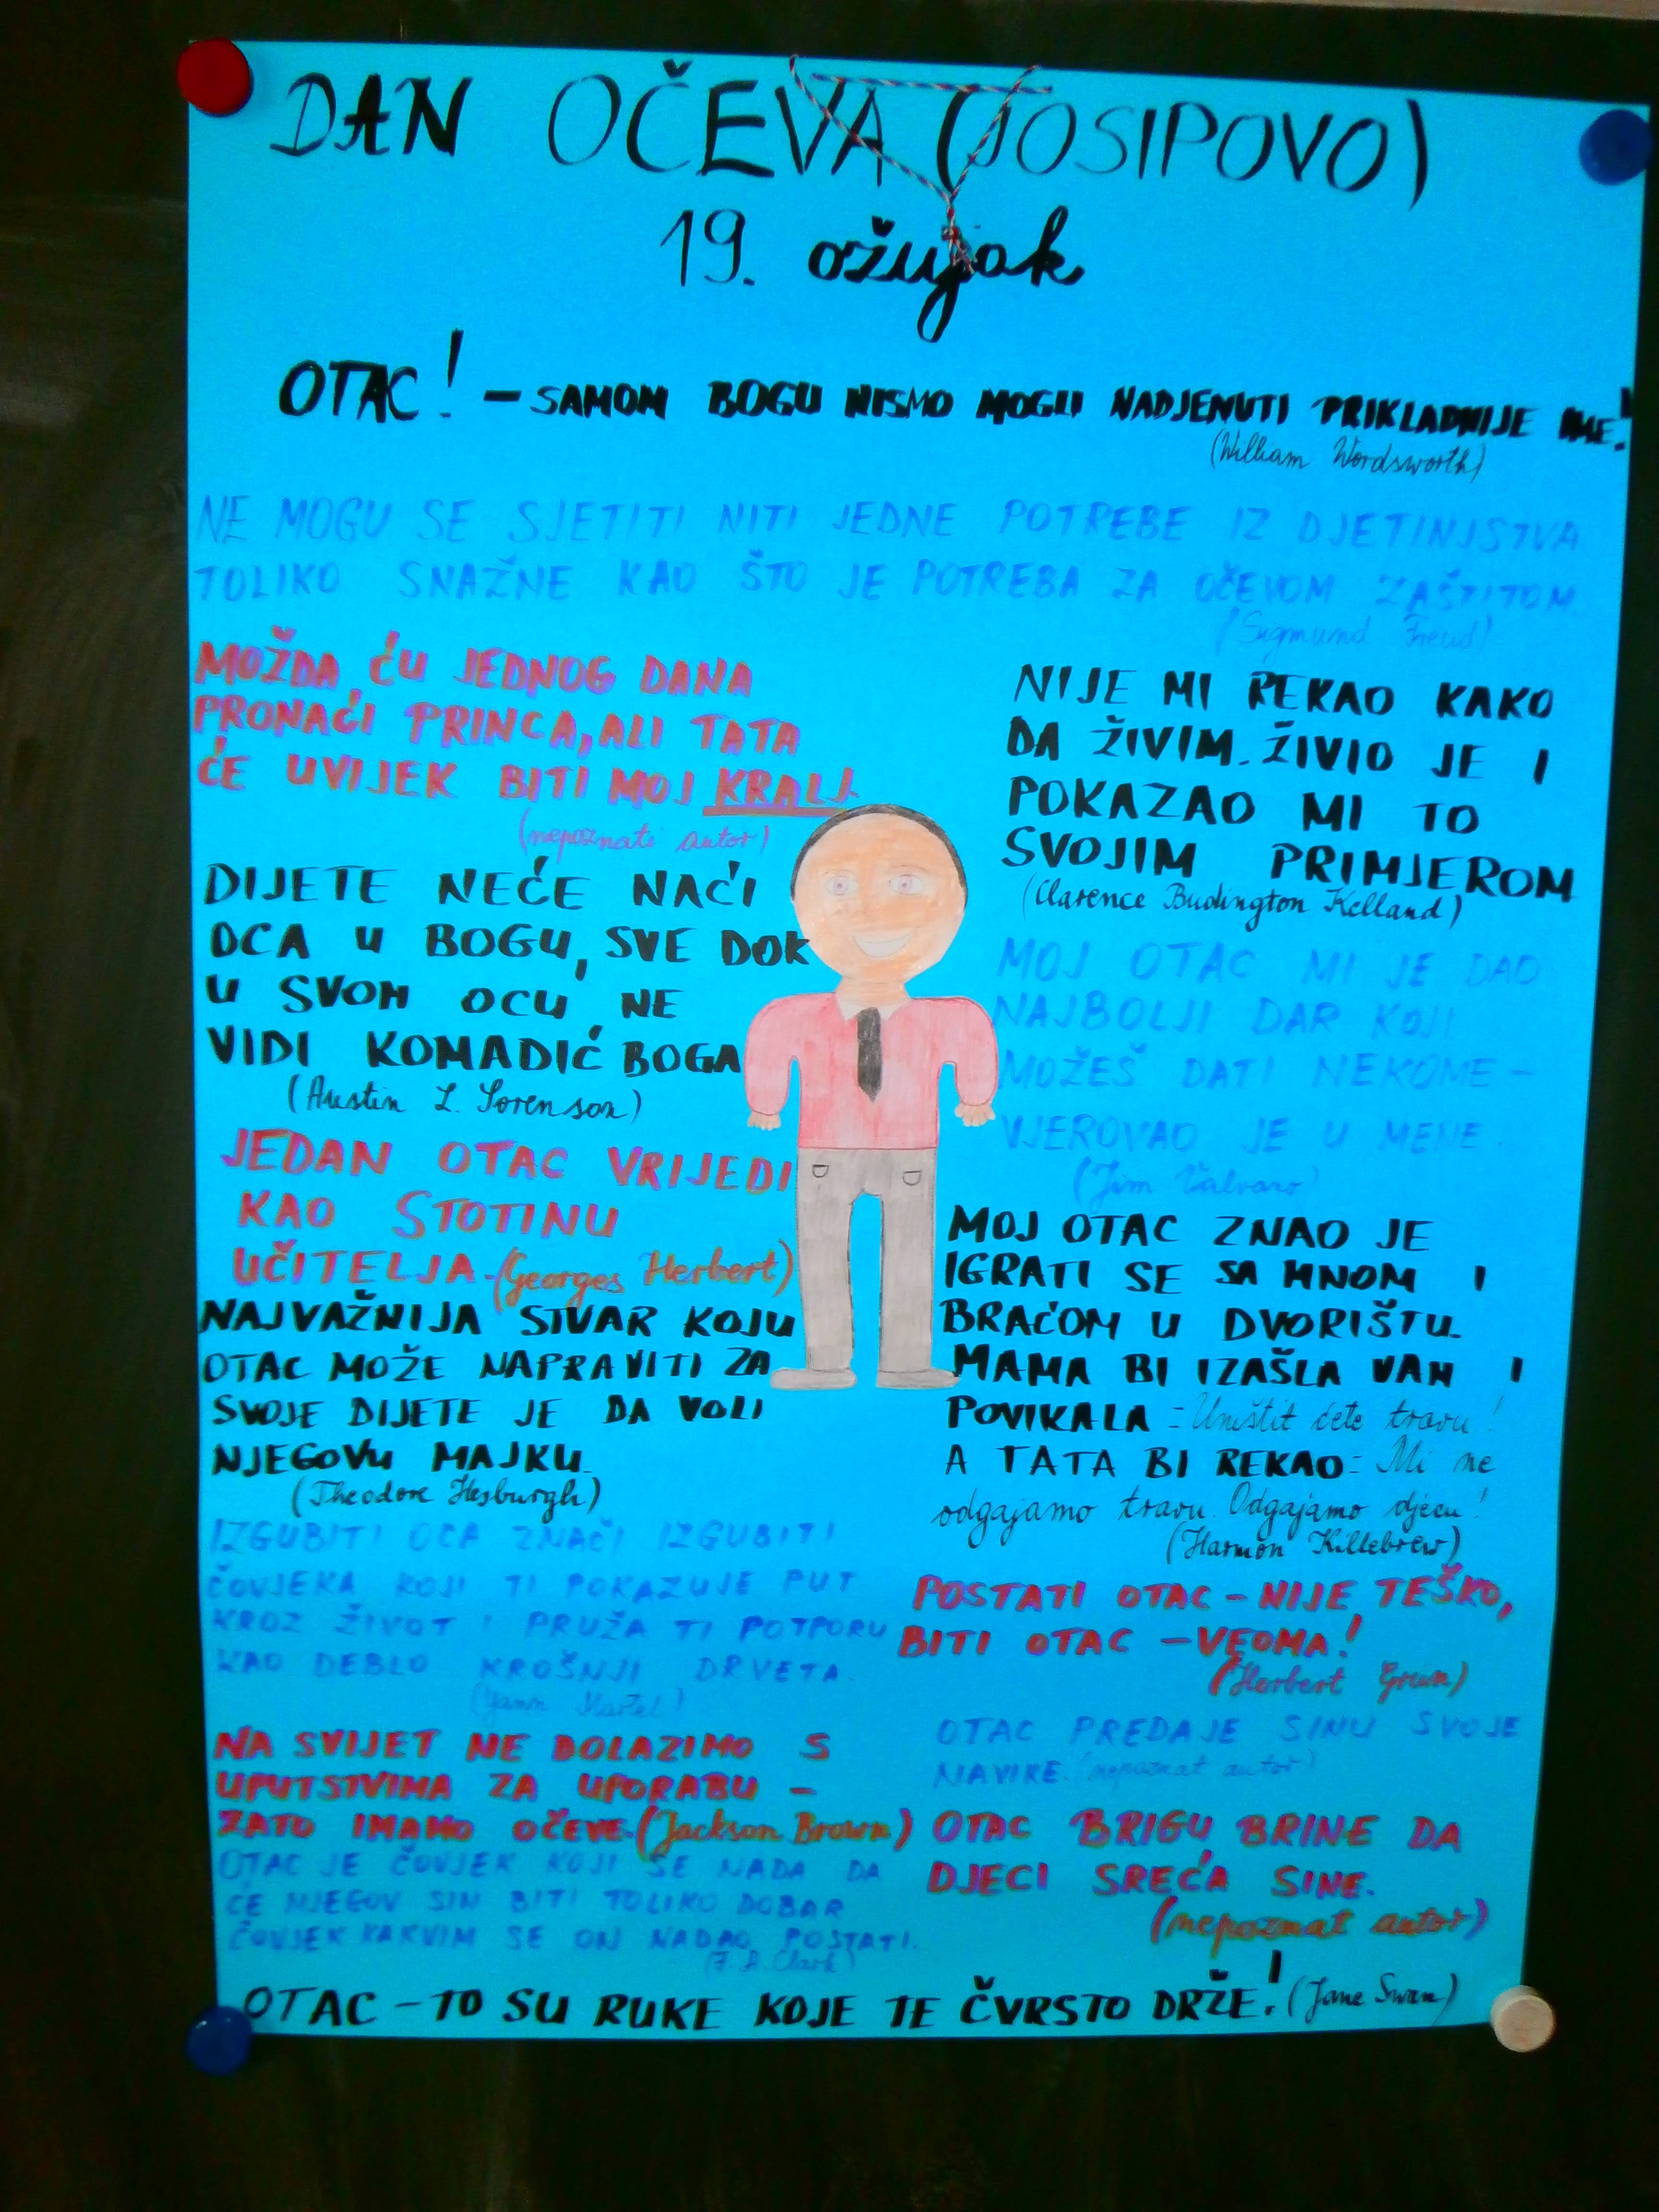 DAN OČEVA (JOSIPOVO)
19. ožujak
OTAC! – SAMOM BOGU NISMO MOGLI NADJENUTI PRIKLADNIJE IME!
(William Wordsworth)
NE MOGU SE SJETITI NITI JEDNE POTREBE IZ DJETINJSTVA
TOLIKO SNAŽNE KAO ŠTO JE POTREBA ZA OČEVOM ZAŠTITOM.
(Sigmund Freud)
MOŽDA ĆU JEDNOG DANA
PRONAĆI PRINCA, ALI TATA
ĆE UVIJEK BITI MOJ KRALJ.
(nepoznati autor)
DIJETE NEĆE NAĆI
OCA U BOGU, SVE DOK
U SVOM OCU, NE
VIDI KOMADIĆ BOGA
(Austin L. Sorenson)
JEDAN OTAC VRIJEDI
KAO STOTINU
UČITELJA. (Georges Herbert)
NAJVAŽNIJA STVAR KOJU
OTAC MOŽE NAPRAVITI ZA
SVOJE DIJETE JE DA VOLI
NJEGOVU MAJKU.
(Theodore Hesburgh)
IZGUBITI OCA ZNAČI IZGUBITI
ČOVJEKA KOJI TI POKAZUJE PUT
KROZ ŽIVOT I PRUŽA TI POTPORU
KAO DEBLO KROŠNJI DRVETA.
(Yann Martel)
NA SVIJET NE DOLAZIMO S
UPUTSTVIMA ZA UPORABU –
ZATO IMAMO OČEVE. (Jackson Brown)
OTAC JE ČOVJEK KOJI SE NADA DA
ĆE NJEGOV SIN BITI TOLIKO DOBAR
ČOVJEK KAKVIM SE ON NADAO POSTATI.
(F. A. Clark)
NIJE MI REKAO KAKO
DA ŽIVIM. ŽIVIO JE I
POKAZAO MI TO
SVOJIM PRIMJEROM
(Clarence Budington Kelland)
MOJ OTAC MI JE DAO
NAJBOLJI DAR KOJI
MOŽEŠ DATI NEKOME –
VJEROVAO JE U MENE.
(Jim Valvano)
MOJ OTAC ZNAO JE
IGRATI SE SA MNOM I
BRAĆOM U DVORIŠTU.
MAMA BI IZAŠLA VAN I
POVIKALA: Uništit ćete travu!
A TATA BI REKAO: Mi ne
odgajamo travu. Odgajamo djecu!
(Harmon Killebrew)
POSTATI OTAC – NIJE TEŠKO,
BITI OTAC – VEOMA!
(Herbert Grun)
OTAC PREDAJE SINU SVOJE
NAVIKE. (nepoznat autor)
OTAC BRIGU BRINE DA
DJECI SREĆA SINE.
(nepoznat autor)
OTAC – TO SU RUKE KOJE TE ČVRSTO DRŽE! (Jane Swan)